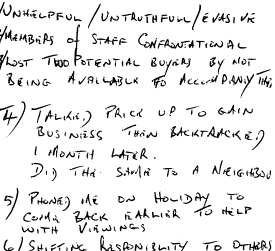 UNHELPFUL / UNTRUTHFULL / EVASIVE
MEMBERS of STAFF CONFRONTATIONAL
LOST TWO POTENTIAL BUYERS BY NOT
BEING AVAILABLE TO ACCOMPANY THE
4) TALKED PRICE UP TO GAIN
BUSINESS THEN BACKTRACKED
1 MONTH LATER.
DID THE SAME TO A NEIGHBOU
5) PHONED ME ON HOLIDAY TO
COME BACK EARLIER TO HELP
WITH VIEWINGS
6) SHIFTING RESPONSIBLITY TO OTHERS